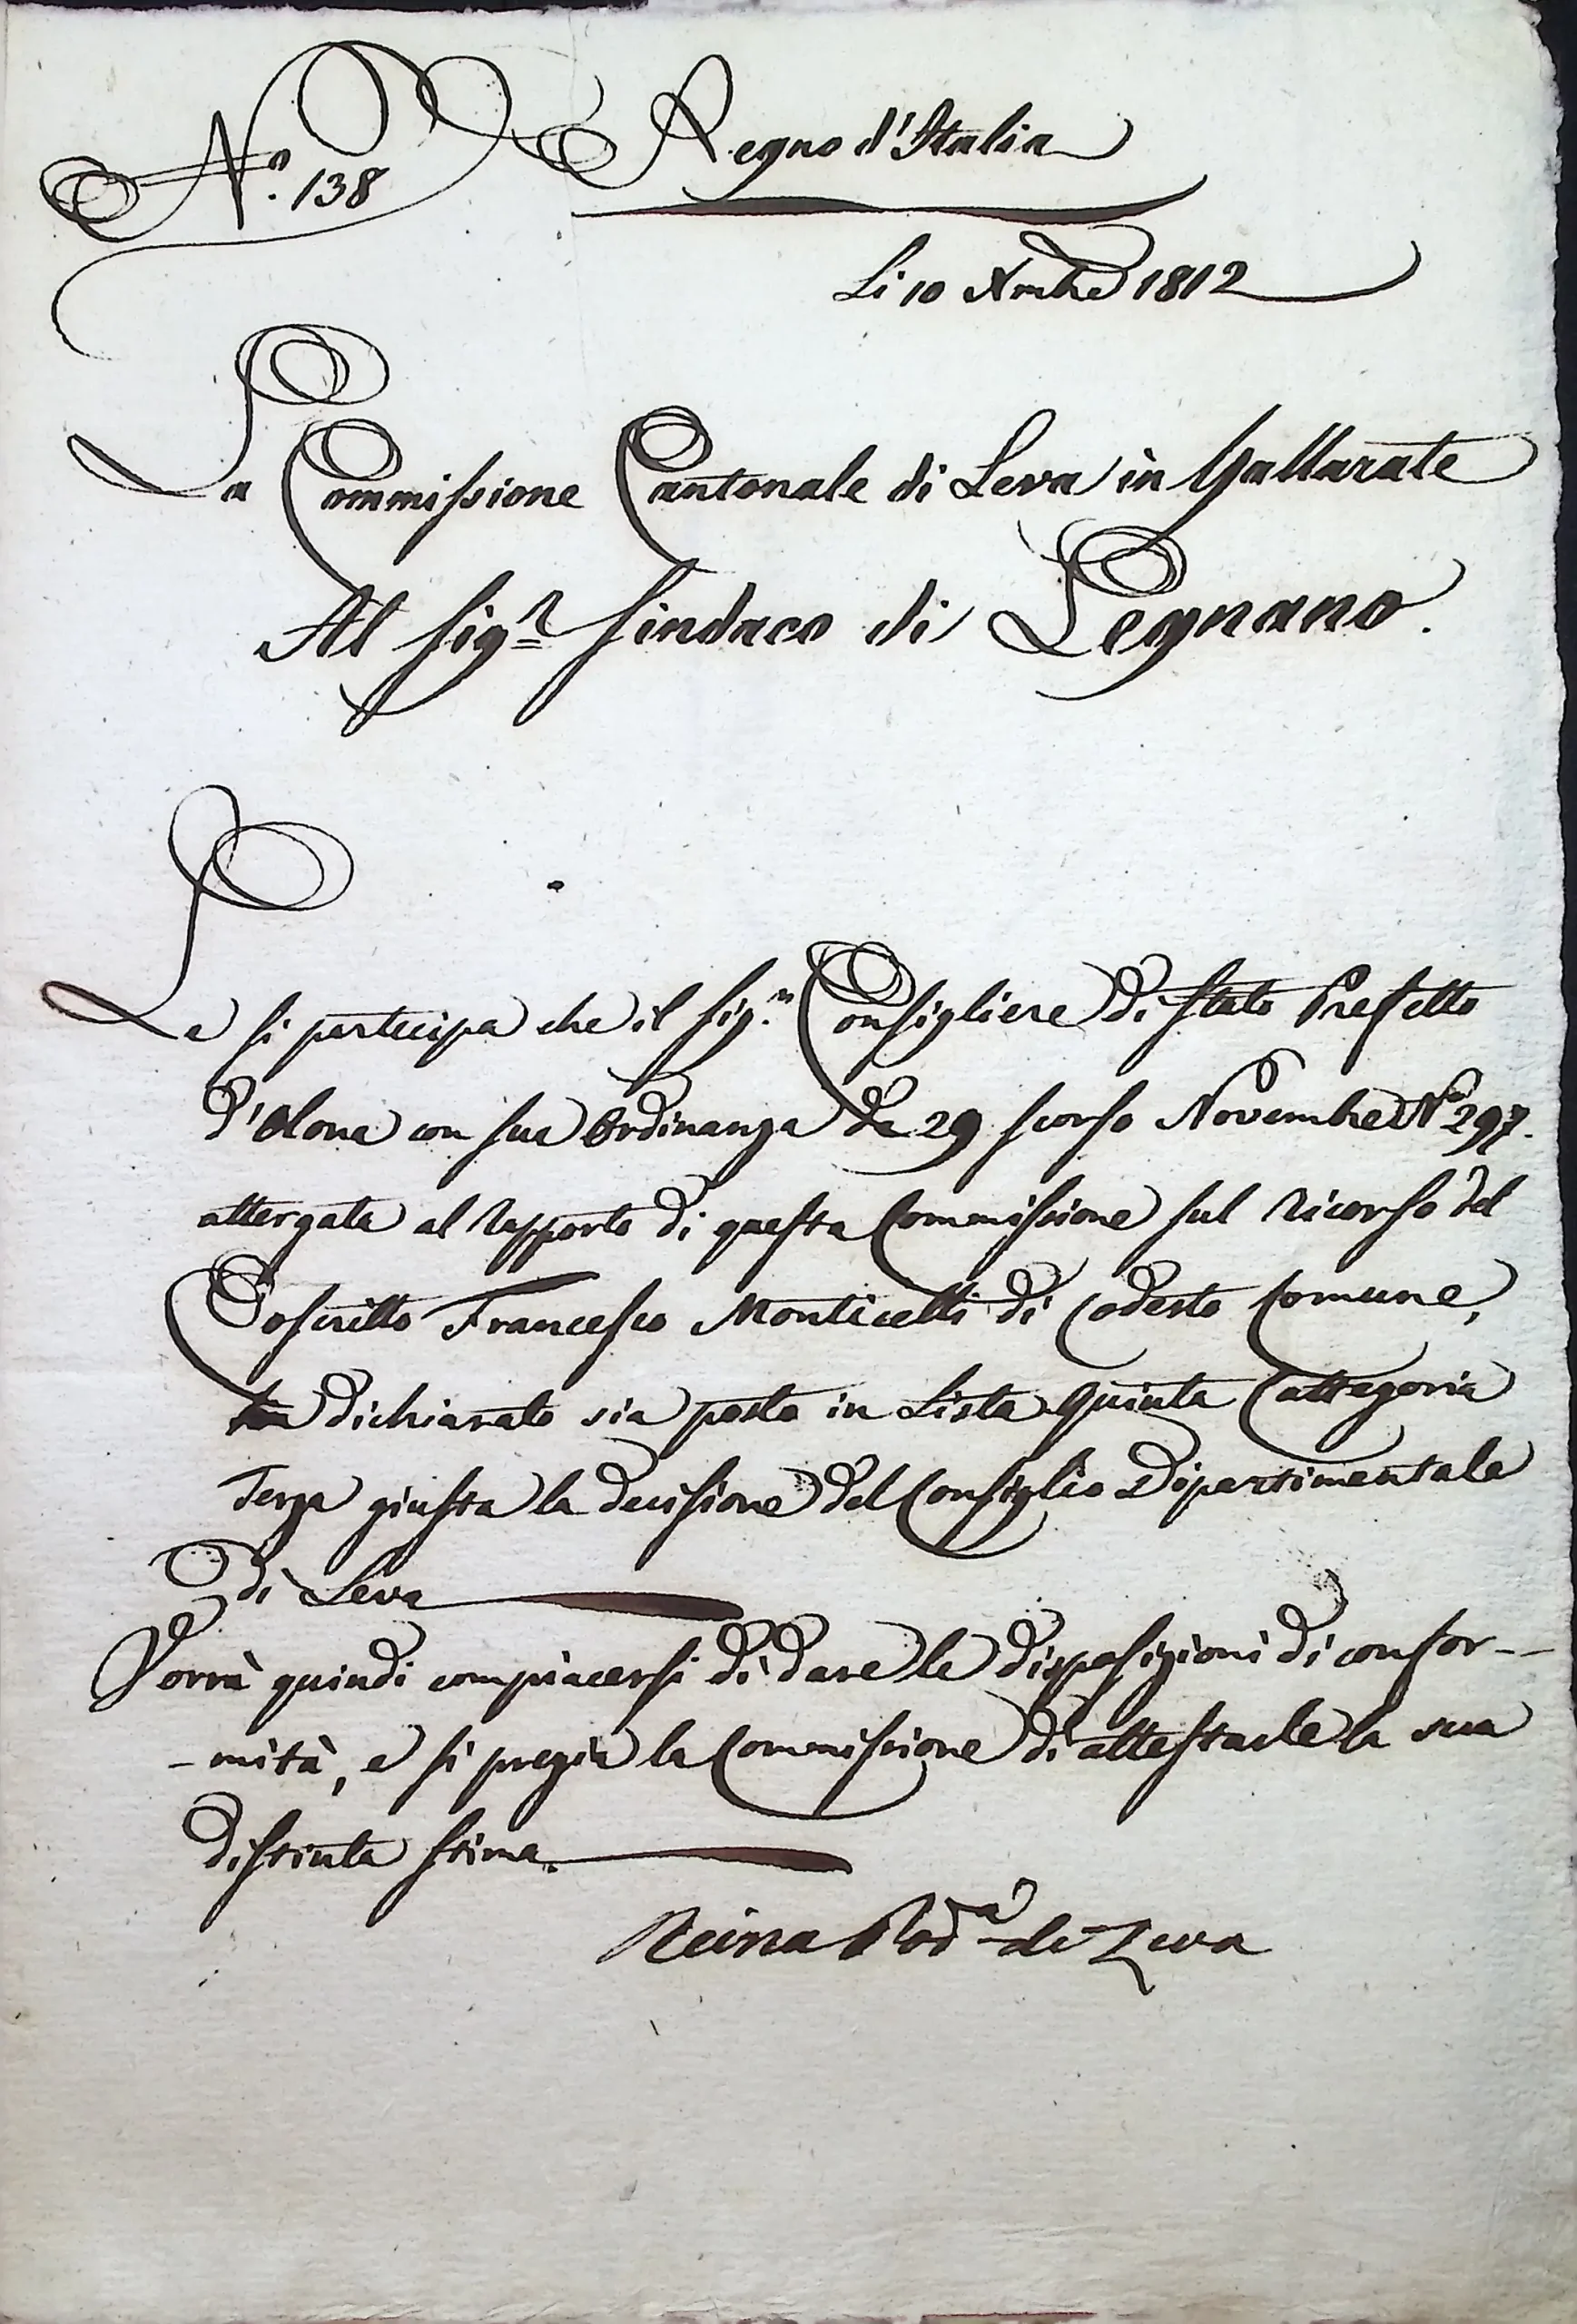 N.º 138
Regno d'Italia
Li 10 Xmbre 1812
La Commissione Cantonale di Leva in Gallarate
Al Sig.r Sindaco di Legnano.
Le si partecipa che il Sig.r Consigliere di Stato Prefetto
d'Olona con sua Ordinanza de 29 scorso Novembre Nº 297.
attergata al rapporto di questa Commissione sul ricorso del
Coscritto Francesco Monticelli di codesto Comune,
ha dichiarato sia posto in Lista Quinta Cattegoria
Terza giusta la decisione del Consiglio Dipartimentale
di Leva
Vorrà quindi compiacersi di dare le disposizioni di confor-
-mità, e si pregia la Commissione di attestarle la sua
distinta stima.
Reina Pod.à di Leva